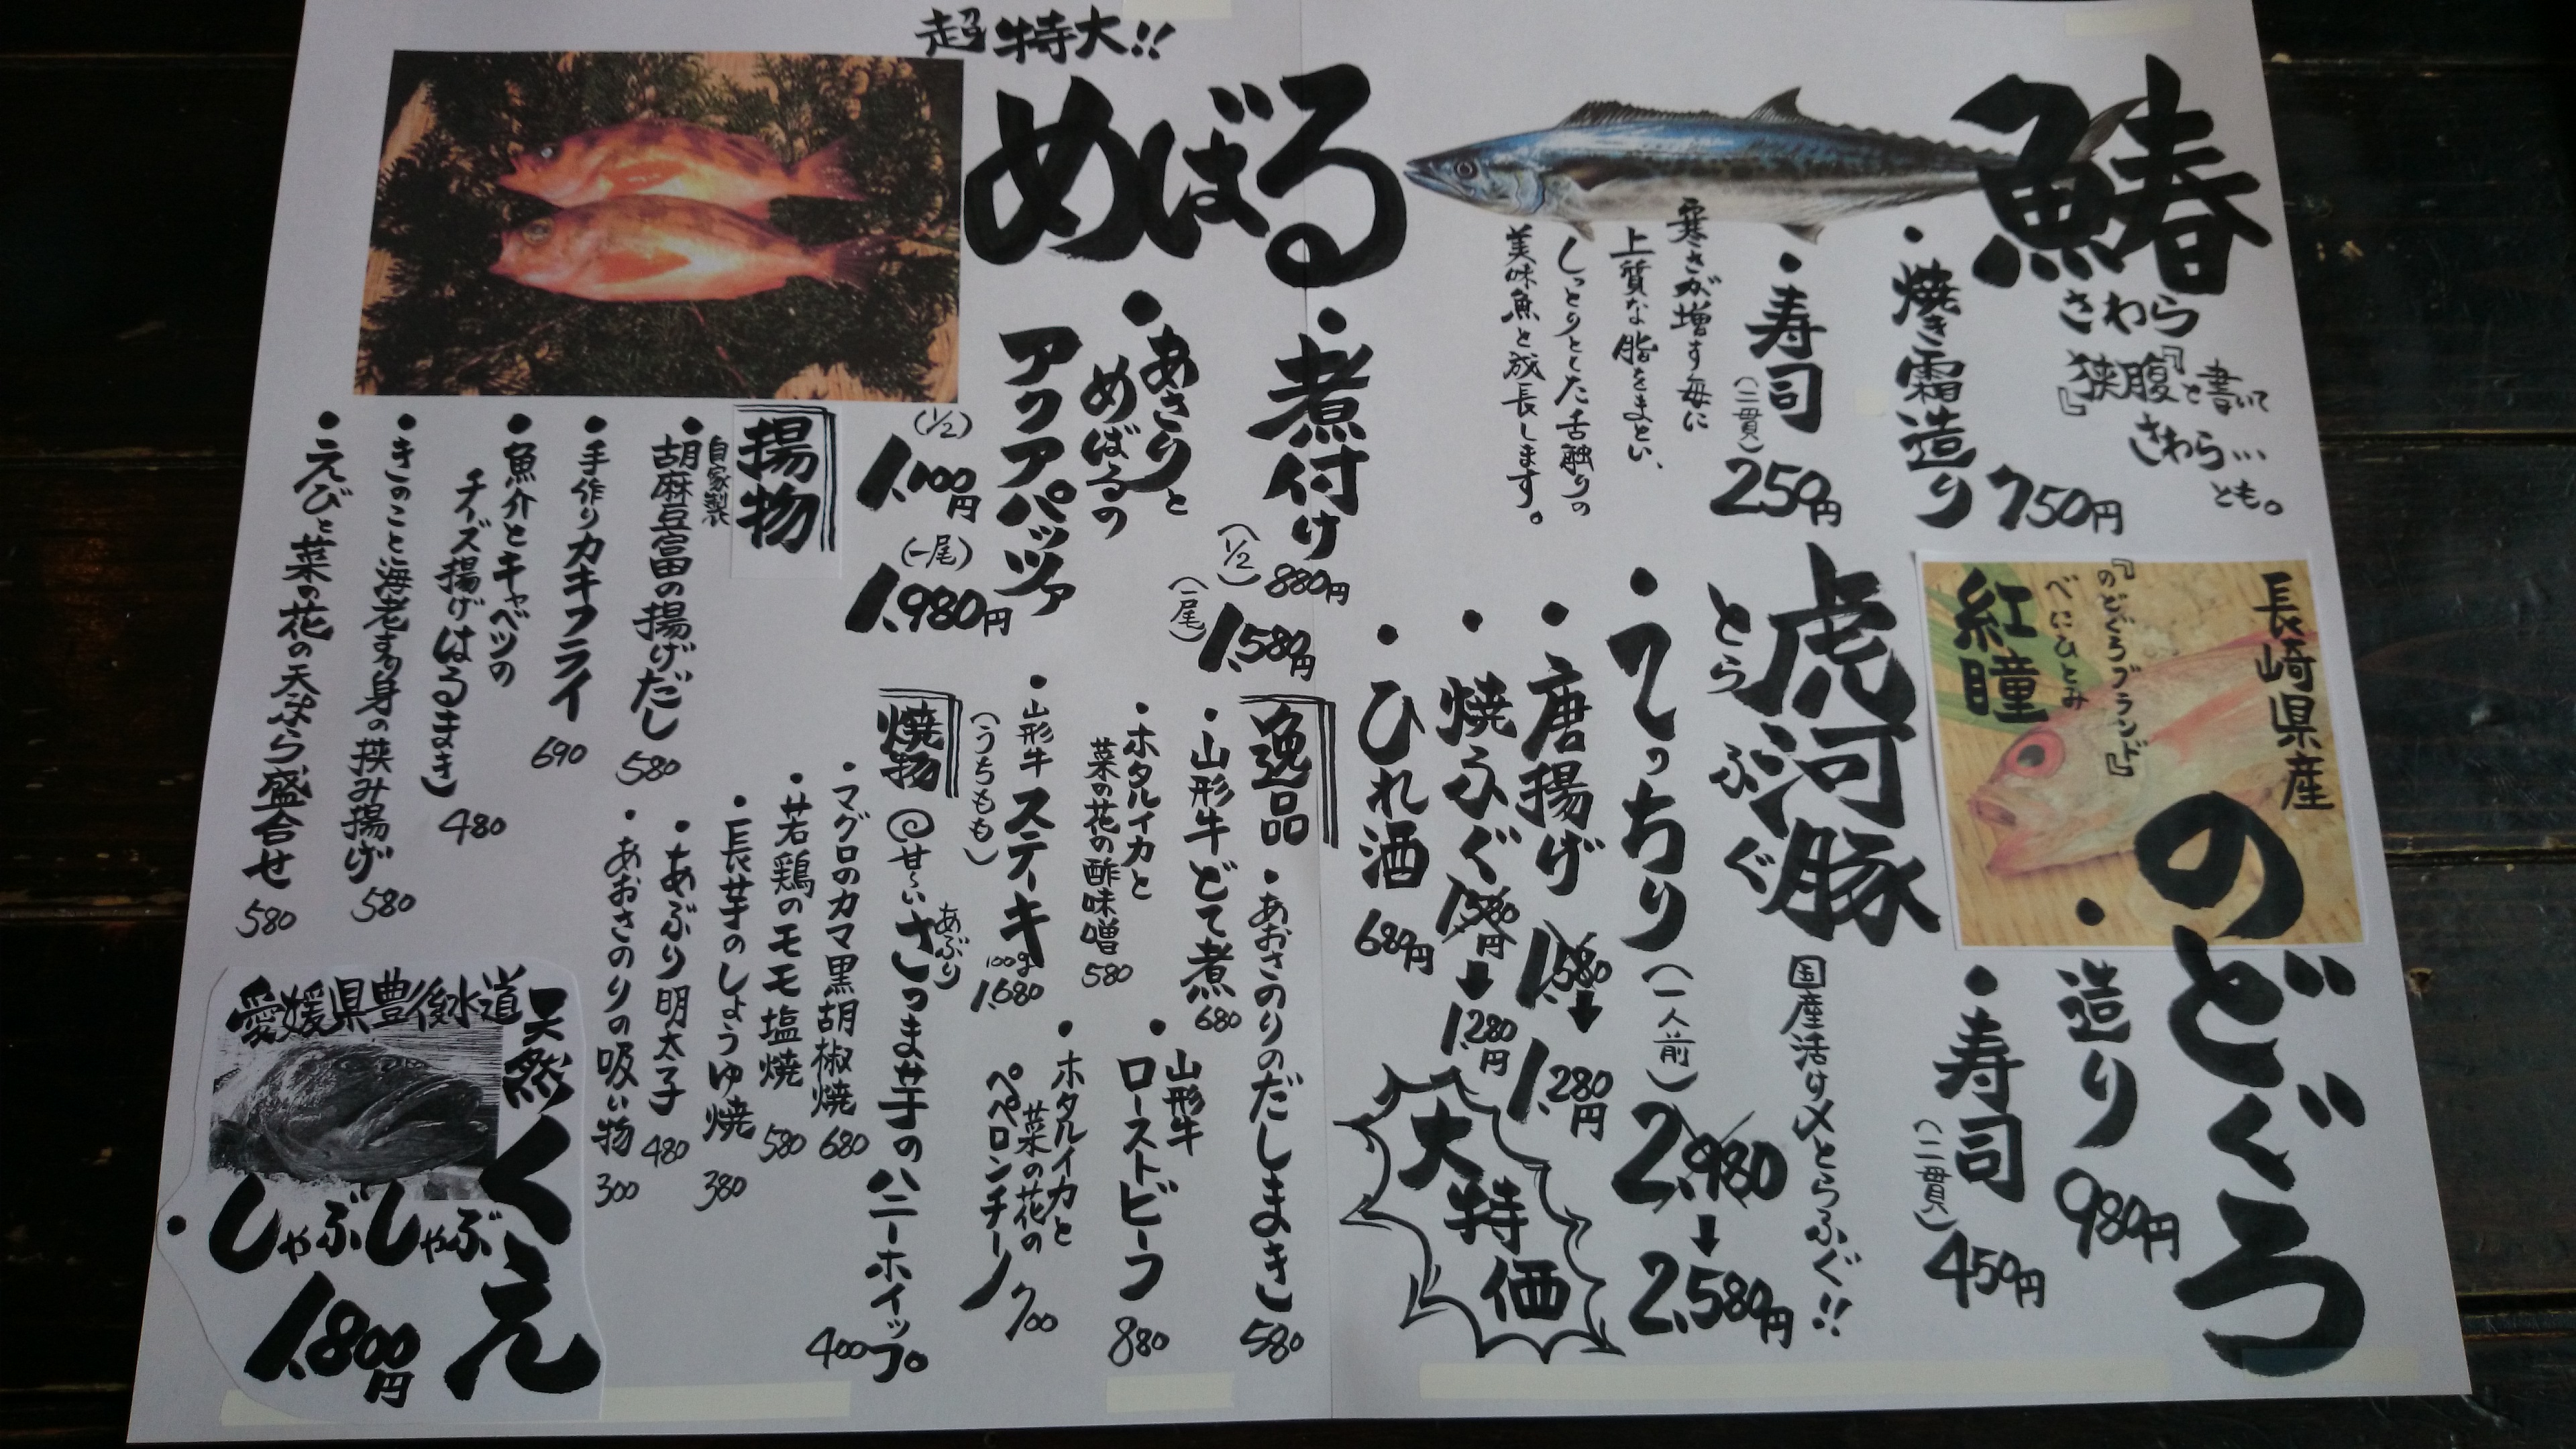 鰆
さわら
『狭腹』と書いて
さわら…
とも。
・焼き霜造り 750円
・寿司(二貫) 250円
寒さが増す毎に
上質な脂をまとい、
しっとりとした舌触りの
美味魚と成長します。
長崎県産
のどぐろ
『のどぐろブランド』
べにひとみ
紅瞳
・造り 980円
・寿司(二貫) 450円
虎河豚
とらふぐ
国産活け〆とらふぐ!!
・てっちり(一人前) 2,980→2,580円
・唐揚げ 1,580→1,280円
・焼ふぐ 1,580円→1,280円
・ひれ酒 680円
大特価
超特大!!
めばる
・煮付け
(1/2) 880円
(一尾) 1,580円
・あさりと
めばるの
アクアパッツァ
(1/2) 1,100円
(一尾) 1,980円
逸品
・あおさのりのだしまき 580
・山形牛どて煮 680
・山形牛
ローストビーフ 880
・ホタルイカと
菜の花の酢味噌 580
・ホタルイカと
菜の花の
ペペロンチーノ 700
・山形牛ステーキ
(うちもも) 100g 1,680
焼物
甘〜い
あぶり
さつま芋のハニーホイップ。 400
・マグロのカマ黒胡椒焼 680
・若鶏のモモ塩焼 580
・長芋のしょうゆ焼 380
・あぶり明太子 480
・あおさのりの吸い物 300
揚物
自家製
・胡麻豆富の揚げだし 580
・手作りカキフライ 690
・魚介とキャベツの
チーズ揚げはるまき 480
・きのこと海老すり身の挟み揚げ 580
・えびと菜の花の天ぷら盛合せ 580
愛媛県豊後水道
天然くえ
・しゃぶしゃぶ
1,800円